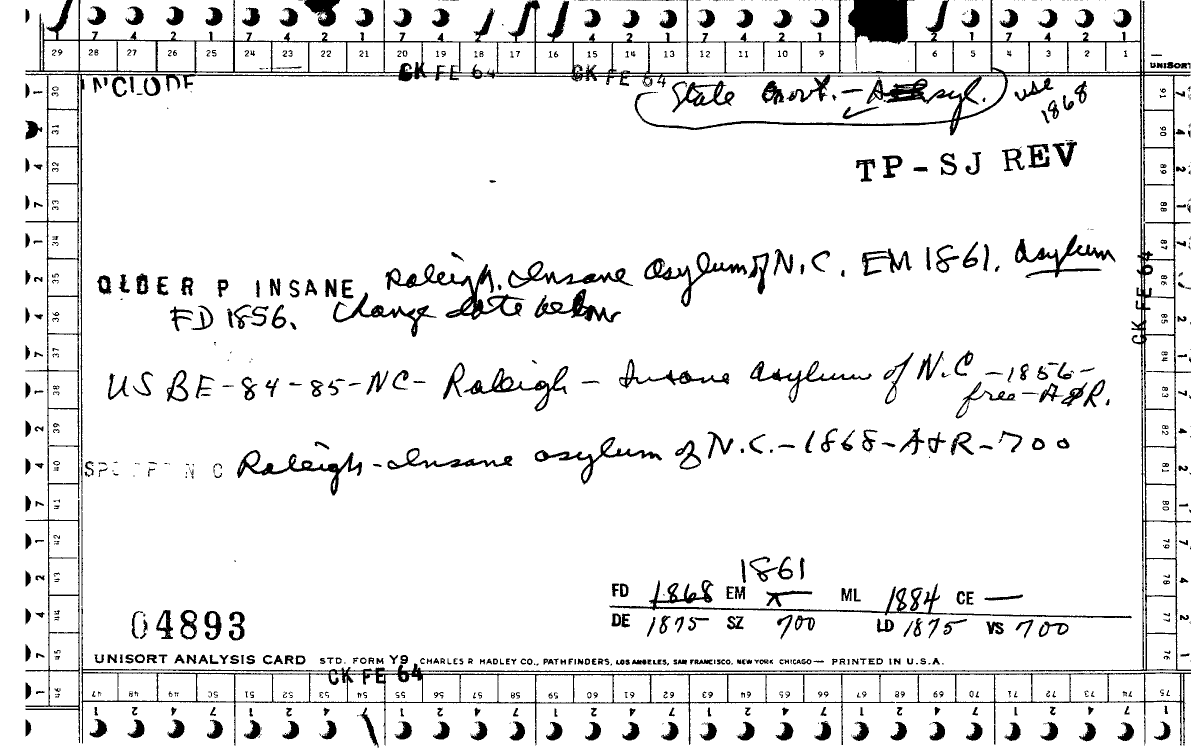 7 4 2 1 7 4 2 1 7 4 2 1 7 4 2 1 7 4 2 1 2 1 7 4 2 1
29 28 27 26 25 24 23 22 21 20 19 18 17 16 15 14 13 12 11 10 9 6 5 4 3 2 1
UNISORT
CK FE 64 CK FE 64
INCLUDE
State Govt. - Asyl. use
1868
TP-SJ REV
OLDER P INSANE Raleigh. Insane Asylum of N.C. EM 1861. Asylum
FD 1856. Change date below
CK FE 64
US BE-84-85-NC- Raleigh - Insane Asylum of N.C - 1856 -
free - A&R.
N C Raleigh - Insane asylum of N.C. - 1868 - A&R - 700
1861
FD 1868 EM ML 1884 CE —
DE 1875 SZ 700 LD 1875 VS 700
04893
UNISORT ANALYSIS CARD STD. FORM Y9 CHARLES R HADLEY CO., PATHFINDERS, LOS ANGELES, SAN FRANCISCO, NEW YORK CHICAGO — PRINTED IN U.S.A.
CK FE 64
30 31 32 33 34 35 36 37 38 39 40 41 42 43 44 45 46
91 90 89 88 87 86 85 84 83 82 81 80 79 78 77 76
47 48 49 50 51 52 53 54 55 56 57 58 59 60 61 62 63 64 65 66 67 68 69 70 71 72 73 74 75